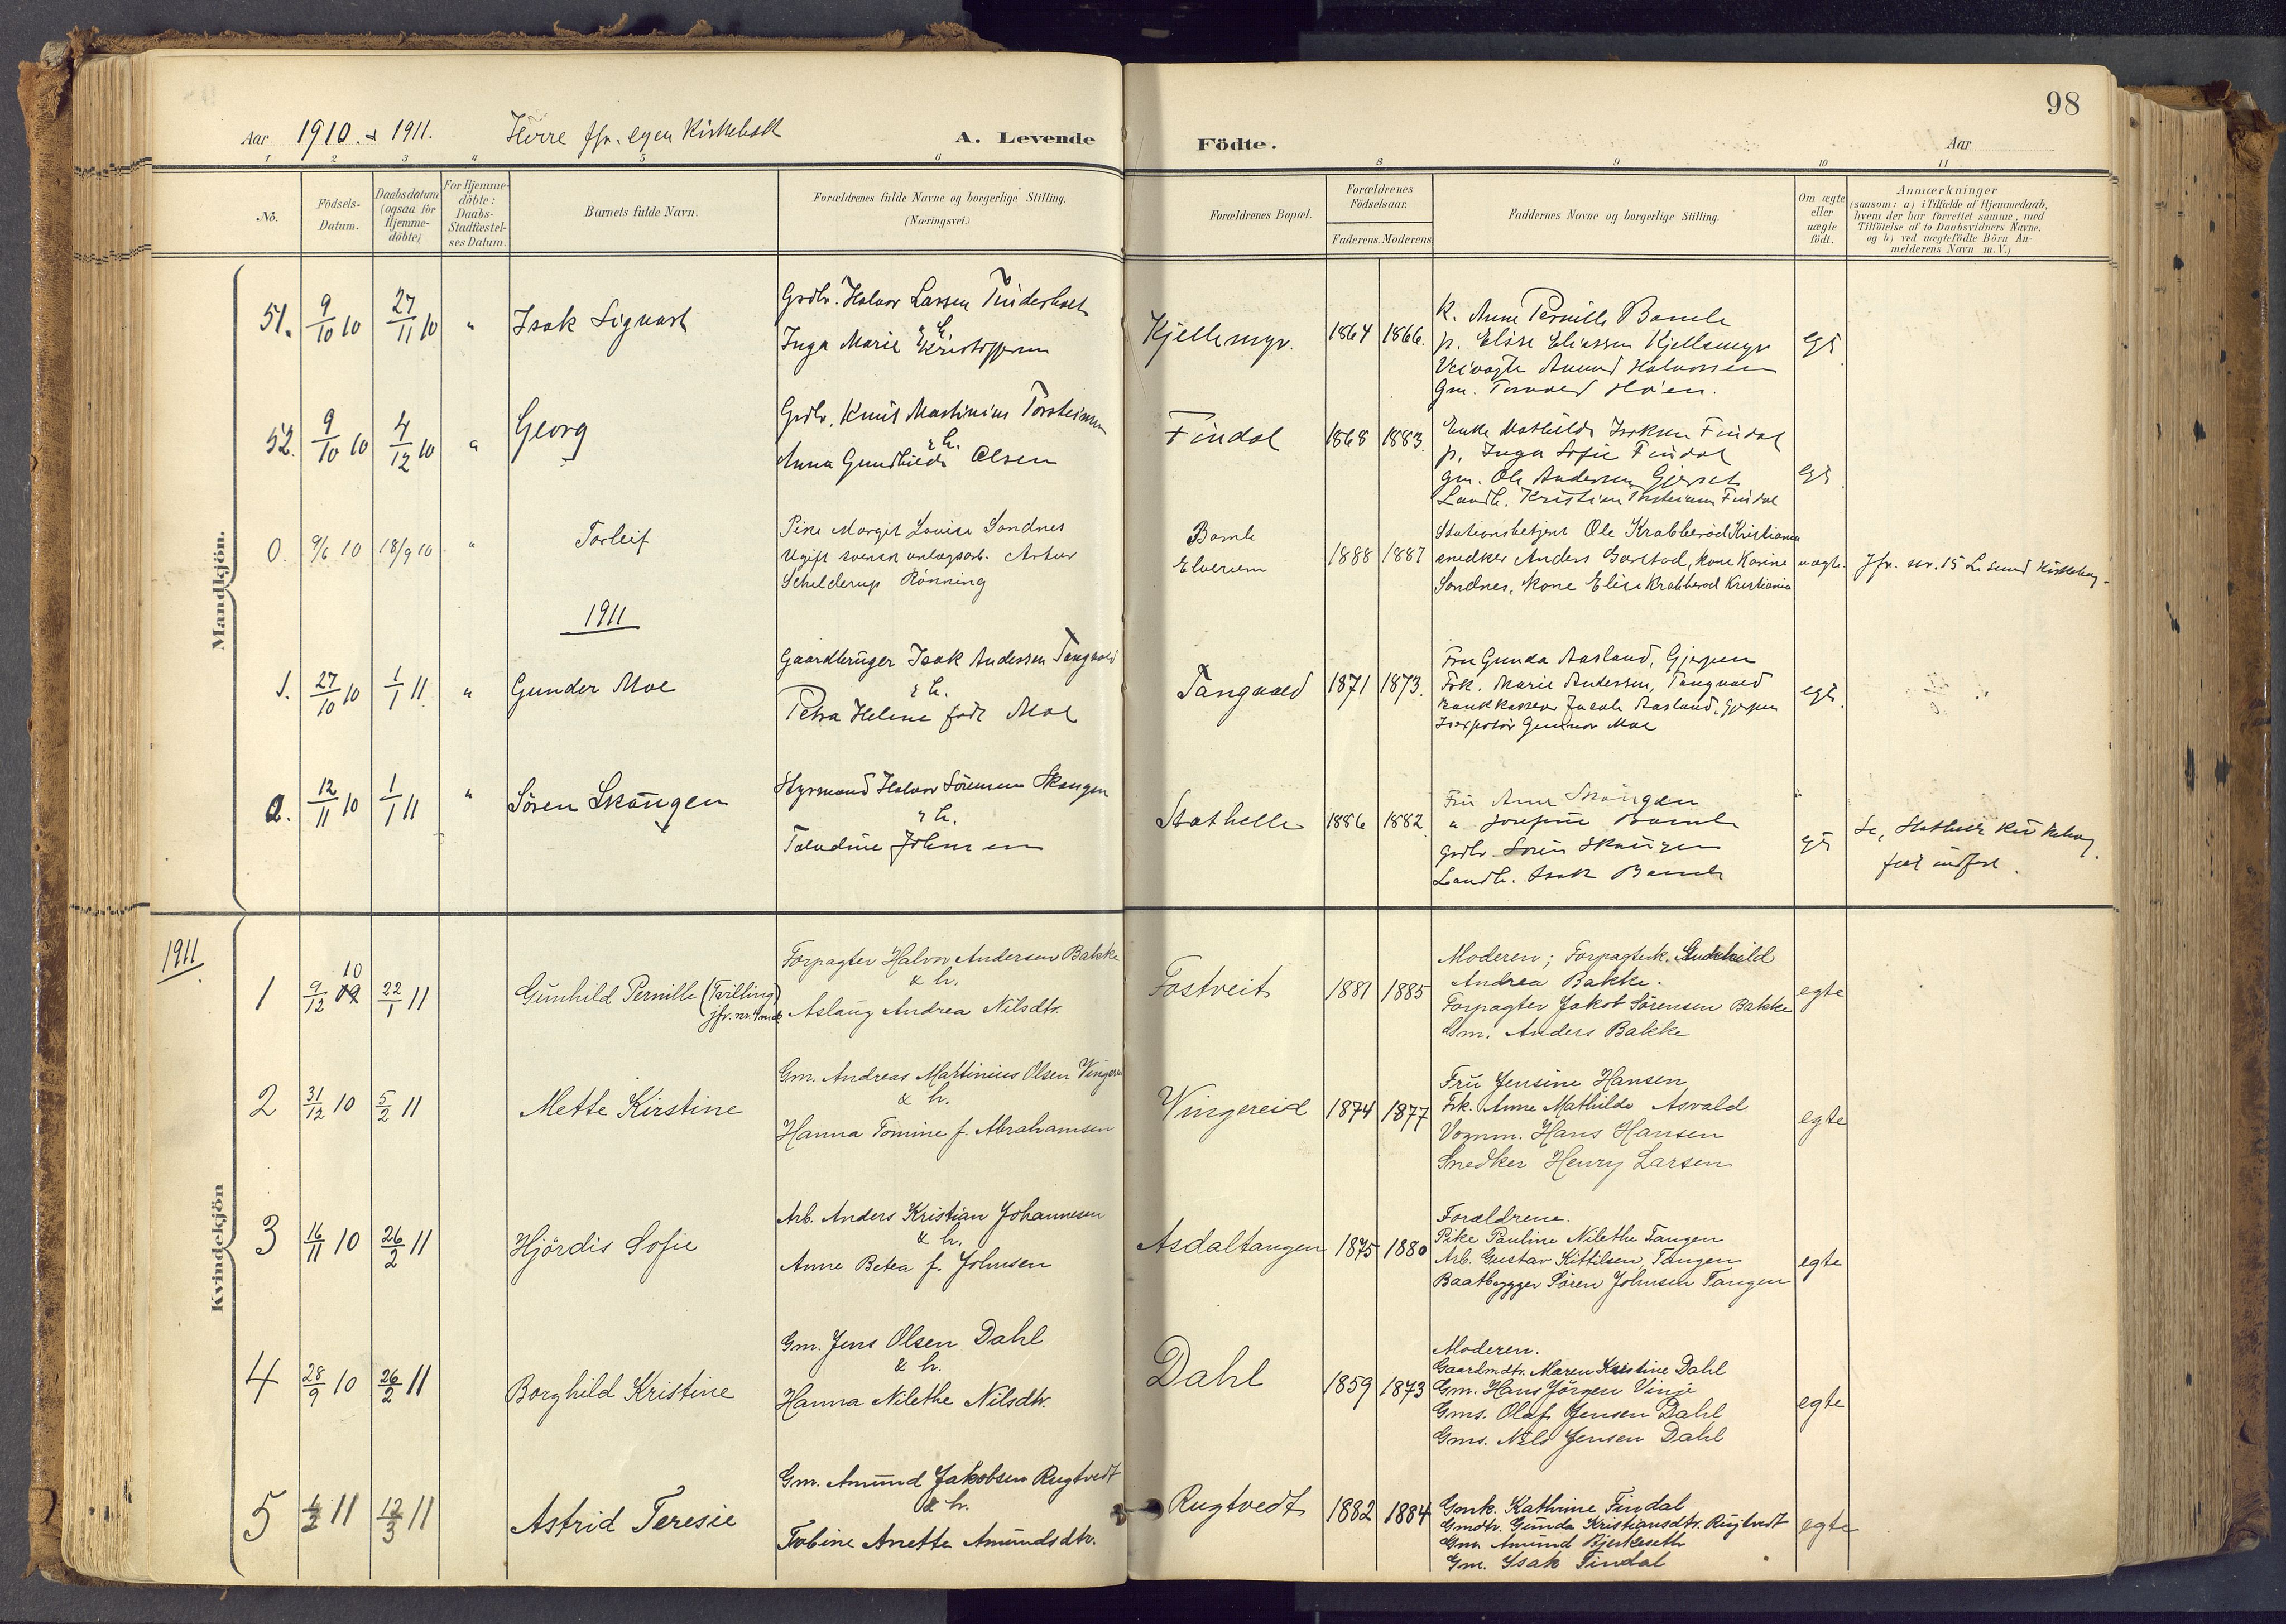 98
Aar 1910 & 1911. Herre jfr. egen Kirkebok A. Levende Födte. Aar
1 2 3 4 5 6 8 9 10 11
No.
Födsels-Datum.
Daabsdatum (ogsaa for Hjemme-döbte)
For Hjemme-döbte: Daabs-Stadfæstel-ses Datum.
Barnets fulde Navn.
Forældrenes fulde Navne og borgerlige Stilling.
(Næringsvei.)
Forældrenes Bopæl.
Forældrenes Födselsaar.
Faderens. Moderens
Faddernes Navne og borgerlige Stilling.
Om ægte eller uægte födt.
Anmærkninger
(saasom: a) i Tilfælde af Hjemmedaab,
hvem der har forrettet samme, med
Tilföielse af to Daabsvidners Navne.
og b) ved uægtefödte Börn An-
melderens Navn m. V.)
Mandkjön.
51. 9/10 10 27/11 10 " Isak Sigvart
Grdbr. Halvor Larsen Tinderholt
& h.
Inga Marie Kristoffersen
Kjellemyr. 1864 1866.
K. Anne Pernille Bamle
p. Elise Eliassen Kjellemyr
Veivogte Amund Halvorsen
Gm. Torvald Høien.
egt.
52. 9/10 10 4/12 10 " Georg
Grdbr. Knut Martinius Torsteinsen
& h.
Anna Gundhilde Olsen
Findal 1868 1883.
Enke Mathilde Isaksen Findal
p. Inga Sofie Findal
gm. Ole Andersen
Landh. Kristian Torsteinsen Findal
egt.
0. 9/6 10 18/9 10 " Torleif
Pike Margit Lovise Sandnes
Ugift svensk anlægsarb. Artur
Schelderup Rönning
Bamle
Elverum
1888 1887
Stationsbetjent Ole Krabberöd Kristiania
snedker Anders Garstad, kone Karine
Sandnes, kone Elise Krabberöd Kristiania
uægte.
Jfr. nr. 15 Kirkebog
1911
1. 27/10 10 1/1 11 " Gunder Moe
Gaardbruger Isak Andersen Tangvald
& h.
Petra Helene födt Moe
Tangvald 1871 1873.
Fru Gunda Aasland, Gjerpen
Frk. Marie Andersen, Tangvald
Bankkasserer Jacob Aasland, Gjerpen
Gunnar Moe
egt.
2. 12/11 10 1/1 11 " Sören Skaugen
Styrmand Halvor Sörensen Skaugen
& h.
Johnsen
Stathelle 1886 1882
Fru Anne Skaugen
" Josefine Bamle
Grdbr Sören Skaugen
Landh. Isak Bamle
egt
Se, Stathelle Kirkebog
feil indfört.
1911
Kvindekjön
1 9/12 10 22/1 11 Gunhild Pernille (Tvilling)
jfr. nr. 4 mdk
Forpagter Halvor Andersen Bakke
& h.
Aslaug Andrea Nilsdtr.
Tostveit 1881 1885
Moderen; Forpagterk. Gudchild
Andrea Bakke.
Forpagter Jakob Sörensen Bakke
Gm. Anders Bakke
egte
2 31/12 10 5/2 11 Mette Kirstine
Gm. Andreas Martinius Olsen Vingereid
& h.
Hanna Tomine f. Abrahamsen
Wingereid 1874 1877
Fru Jensine Hansen
Frk. Anne Mathilde Asvald
Vognm. Hans Hansen
Snedker Henry Larsen
egte
3 16/11 10 26/2 11 Hjördis Sofie
Arb. Anders Kristian Johannesen
& h.
Anne Betea f. Johnsen
Asdaltangen 1875 1880
Forældrene.
Pike Pauline Nilethe Tangen
Arb. Gustav Kittilsen, Tangen
Baatbygger Sören Johnsen Tangen
egte
4 28/9 10 26/2 11 Borghild Kristine
Gm. Jens Olsen Dahl
& h.
Hanna Nilethe Nilsdtr.
Dahl 1859 1873
Moderen.
Gaardmdtr. Maren Kristine Dahl
Gm. Hans Jörgen Vinje
Gms. Olaf Jensen Dahl
Gms. Nils Jensen Dahl
egte
5 1/2 11 12/3 11 Astrid Teresie
Gm. Amund Jakobsen Rugtvedt
& h.
Tobine Anette Amundsdtr.
Rugtvedt 1882 1884
Gmk. Kathrine Findal
Gmdtr. Gunda Kristiansdtr. Rugtvedt
Gm. Amund Bjerkeseth
Gm. Isak Findal
egte